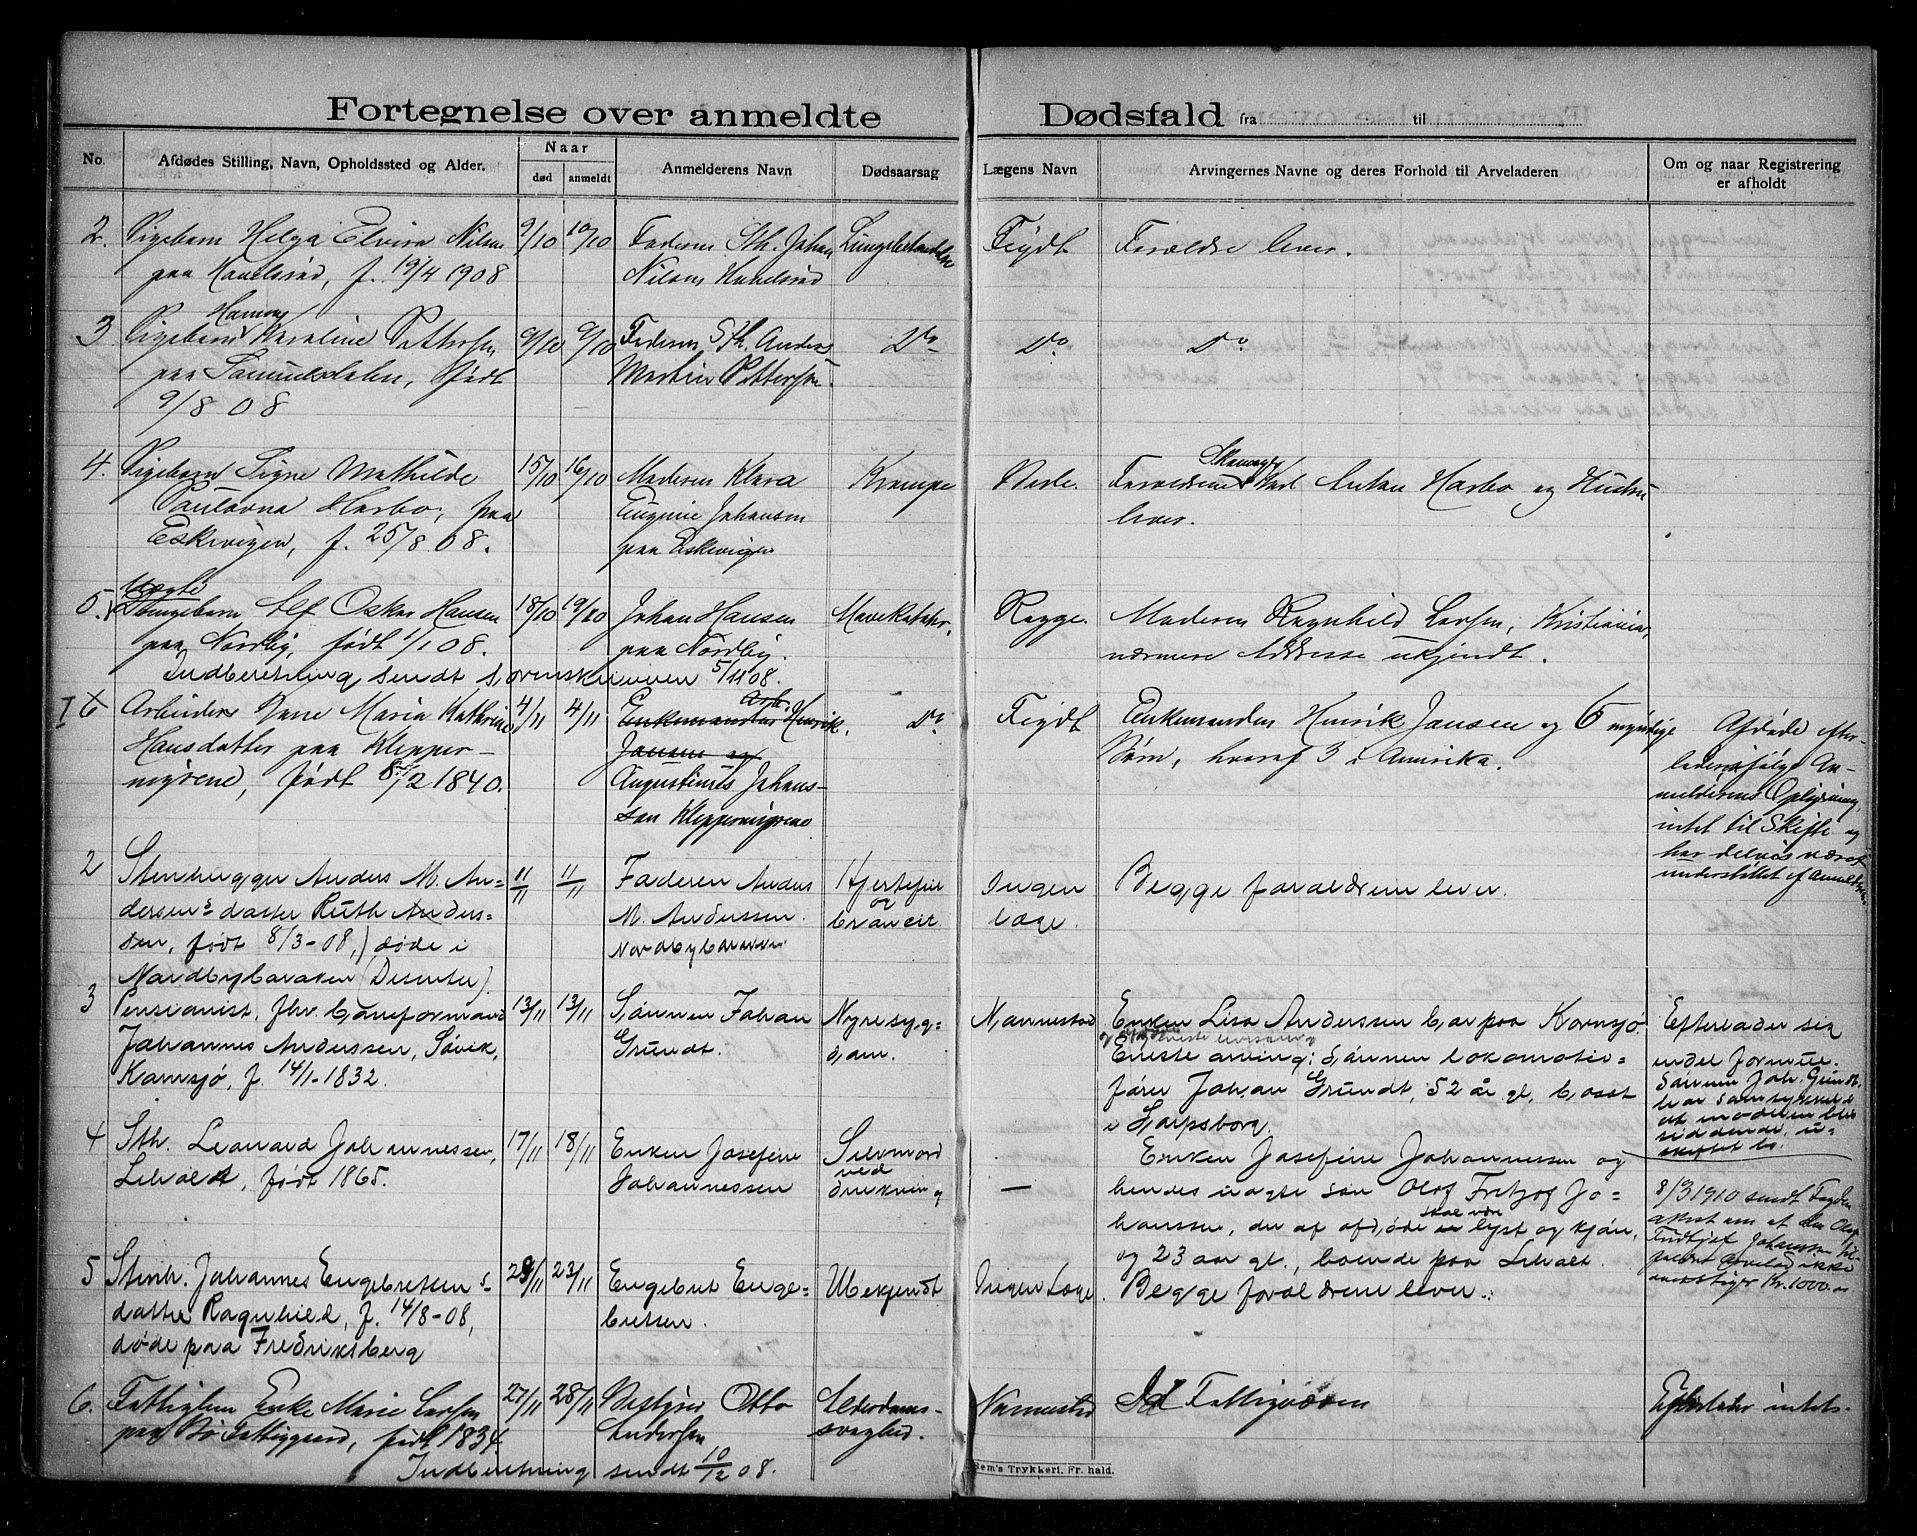 Fortegnelse over anmeldte Dødsfald fra til
No.
Afdødes Stilling, Navn, Opholdssted og Alder.
Naar
død
anmeldt
Anmelderens Navn
Dødsaarsag
Lægens Navn
Arvingernes Navne og deres Forhold til Arveladeren
Om og naar Registrering
er afholdt
2. Pigebarn Helga Elvira Nilsen
paa Havelsrød, f. 19/4 1908
9/10 10/10
Faderen Sth. Johan
Nilsen Havelsrød
Lungebetændelse
Fejdt
Forældre lever.
3 Pigebarn Hanny Karoline Pettersen
paa Samuelsdalen, født
9/8 08
9/10 9/10
Faderen Sth. Anders
Martin Pettersen.
Do
Do
Do
4. Pigebarn Signe Mathilde
Paulovna Harbo, paa
Eskevigen, f. 25/8 08.
15/10 16/10
Moderen Klara
Eugenie Johansen
paa Eskevigen
Krampe
Forældrene Skomager Karl Anton Harbo og Hustru
lever.
5. Uægte Drengebarn Alf Oskar Hansen
paa Nordby, født 1/1 08.
18/10 19/10
Johan Hansen
paa Nordby.
Mavekatarr.
Rygge.
Moderen Ragnhild Larsen, Kristiania,
nærmere Addresse ukjendt.
Indberetning sendt Sorenskriveren 5/11 08.
Arbeiders Hane Maria Kathrine
Hansdatter paa Klepper-
myrene, født 8/2 1840.
4/11 4/11
Enkemanden Arb. Henrik
Jansen og
Augustinus Johans-
son Kleppermyrene
Do
Fejdt
Enkemanden Henrik Jansen og 6 myndige
Børn, hvoraf 3 i Amerika.
Afdøde efter-
lader ifølge An-
melderens Oplysning,
intet til Skifte og
har delvis været
understøttet af anmelderen
2 Stenhugger Anders M. An-
dersens datter Ruth Anders-
sen, født 8/3-08, døde i
Nordbybaraken (Disenter).
11/11 11/11
Faderen Anders
M. Anderssen.
Nordbybaraken
Hjertefeil
og
broncit.
Ingen
læge.
Begge forældrene lever.
3 Pensionist, fhv. baneformand
Johannes Anderssen, Søvik,
Kornsjø, f. 14/1-1832.
13/11 13/11
Sønnen Johan
Grundt.
Nyresyg-
dom.
Nannestad
Enken Lisa Anderssen bor paa Kornsjø
Eneste arving: sønnen lokomotiv-
fører Johan Grundt, 52 år gl, bosat
i Sarpsborg.
Efterlader sig
endel formue.
Sønnen Joh. Grundt
har samtykket i
at moderen blir
siddende i u-
skiftet bo.
4 Sth. Leonard Johannessen,
Liholt, født 1865.
17/11 18/11
Enken Josefine
Johannessen
Selvmord
ved
drukning
—
Enken Josefine Johannessen og
hendes uægte søn Olof Fritjof Jo-
hanssen, der af afdøde skal være lyst og kjøn,
og 23 aar gl., boende paa Liholt.
8/3 1910 sendt
at den Olof
Fridtjof Johanssen
Kr. 1000.
5 Stenh. Johannes Engebretsens
datter Ragnhild, f. 14/8-08,
døde paa Fredriksberg
23/11 23/11
Engebret Enge-
bretsen.
Ubekjendt
Ingen Læge.
Begge forældrene lever.
6. Fattiglem Enke Marie Larsen
paa Bø Fattiggaard, født 1834.
27/11 28/11
Bestyrer Otto
Andersen
Alderdoms-
svaghed.
Nannestad
Fattigvæsen
Efterlader intet.
Indberetning sendt 10/12 08.
Sem's Trykkeri. Fr. hald.